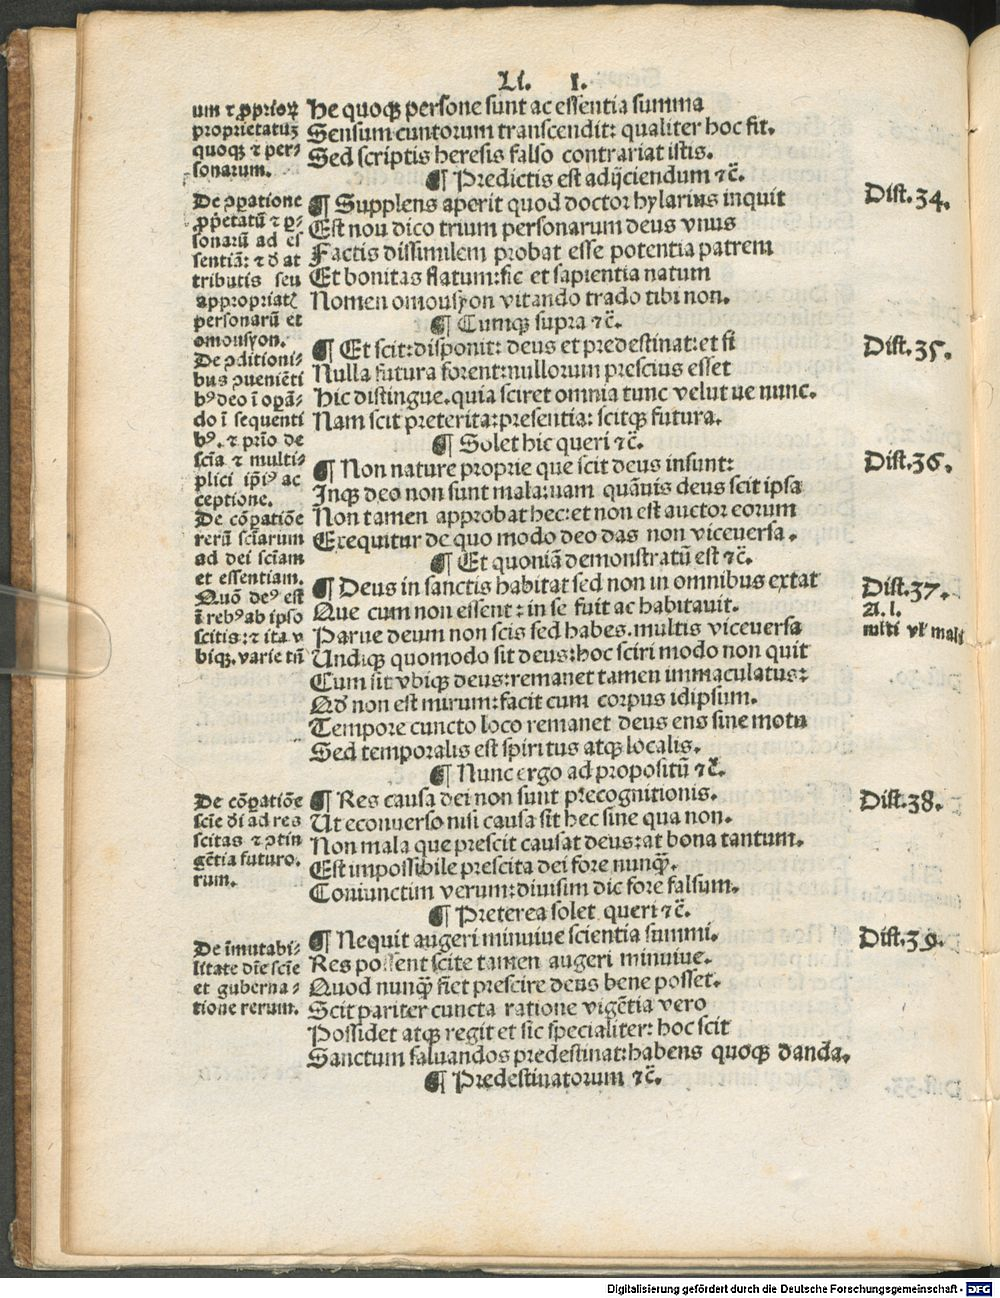 Li. I.
He quoqꝫ persone sunt ac essentia summa
Sensum cuntorum transcendit: qualiter hoc fit.
Sed scriptis heresis falso contrariat istis.
¶ Predictis est adijciendum ⁊c̄.
¶ Supplens aperit quod doctor hylarius inquit
Est nou dico trium personarum deus vnus
Factis dissimilem probat esse potentia patrem
Et bonitas flatum:sic et sapientia natum
Nomen omousyon vitando trado tibi non.
¶ Cumqꝫ supra ⁊c̄.
¶ Et scit:disponit: deus et predestinat:et si
Nulla futura forent:nullorum prescius esset
Hic distingue.quia sciret omnia tunc velut ue nunc.
Nam scit preterita:presentia: scitqꝫ futura.
¶ Solet hic queri ⁊c̄.
¶ Non nature proprie que scit deus insunt:
Inqꝫ deo non sunt mala:nam quāuis deus scit ipsa
Non tamen approbat hec:et non est auctor eorum
Exequitur de quo modo deo das non viceuersa.
¶ Et quoniā demonstratū est ⁊c̄.
¶ Deus in sanctis habitat sed non in omnibus extat
Que cum non essent : in se fuit ac habitauit.
Parue deum non scis sed habes.multis viceuersa
Undiqꝫ quomodo sit deus:hoc sciri modo non quit
Cum sit vbiqꝫ deus:remanet tamen immaculatus:
Qd̄ non est mirum:facit cum corpus idipsum.
Tempore cuncto loco remanet deus ens sine motu
Sed temporalis est spiritus atqꝫ localis.
¶ Nunc ergo ad propositū ⁊c̄.
¶ Res causa dei non sunt precognitionis.
Ut econuerso nisi causa sit hec sine qua non.
Non mala que prescit causat deus:at bona tantum.
Est impossibile prescita dei fore nunqꝫ̄.
Coniunctim verum:diuisim dic fore falsum.
¶ Preterea solet queri ⁊c̄.
¶ Nequit augeri minuiue scientia summi.
Res possent scite tamen augeri minuiue.
Quod nunqꝫ̄ fiet prescire deus bene posset.
Scit pariter cuncta ratione vigētia vero
Possidet atqꝫ regit et sic specialiter: hoc scit
Sanctum saluandos predestinat:habens quoqꝫ danda.
¶ Predestinatorum ⁊c̄.
um ⁊ ꝓprioꝝ
proprietatuꝫ
quoqꝫ ⁊ per-
sonarum.
De ꝯpatione
ꝓp̄etatū ⁊ ꝑ-
sonarū ad es
sentiā: ⁊ d̄ at
tributis seu
appropriatꝭ
personarū et
omousyon.
De ꝯditioni-
bus ꝯueniēti
bꝰ deo ī oꝑā-
do ī sequenti
bꝰ. ⁊ prīo de
scīa ⁊ multi-
plici ip̄iꝰ ac
ceptione.
De cōꝑatiōe
rerū scīarum
ad dei scīam
et essentiam.
Quō deꝰ est
ī rebꝰ ab ipso
scitis: ⁊ ita v
biqꝫ.varie tn̄
De cōꝑatiōe
scīe di ad res
scitas ⁊ ꝯtin
gētia futuro.
rum.
De īmutabi-
litate dīe scīe
et guberna-
tione rerum.
Dist.34.
Dist.35.
Dist.36.
Dist.37.
Al.
mlti vl mali
Dist.38.
Dist.39.
Digitalisierung gefördert durch die Deutsche Forschungsgemeinschaft - DFG